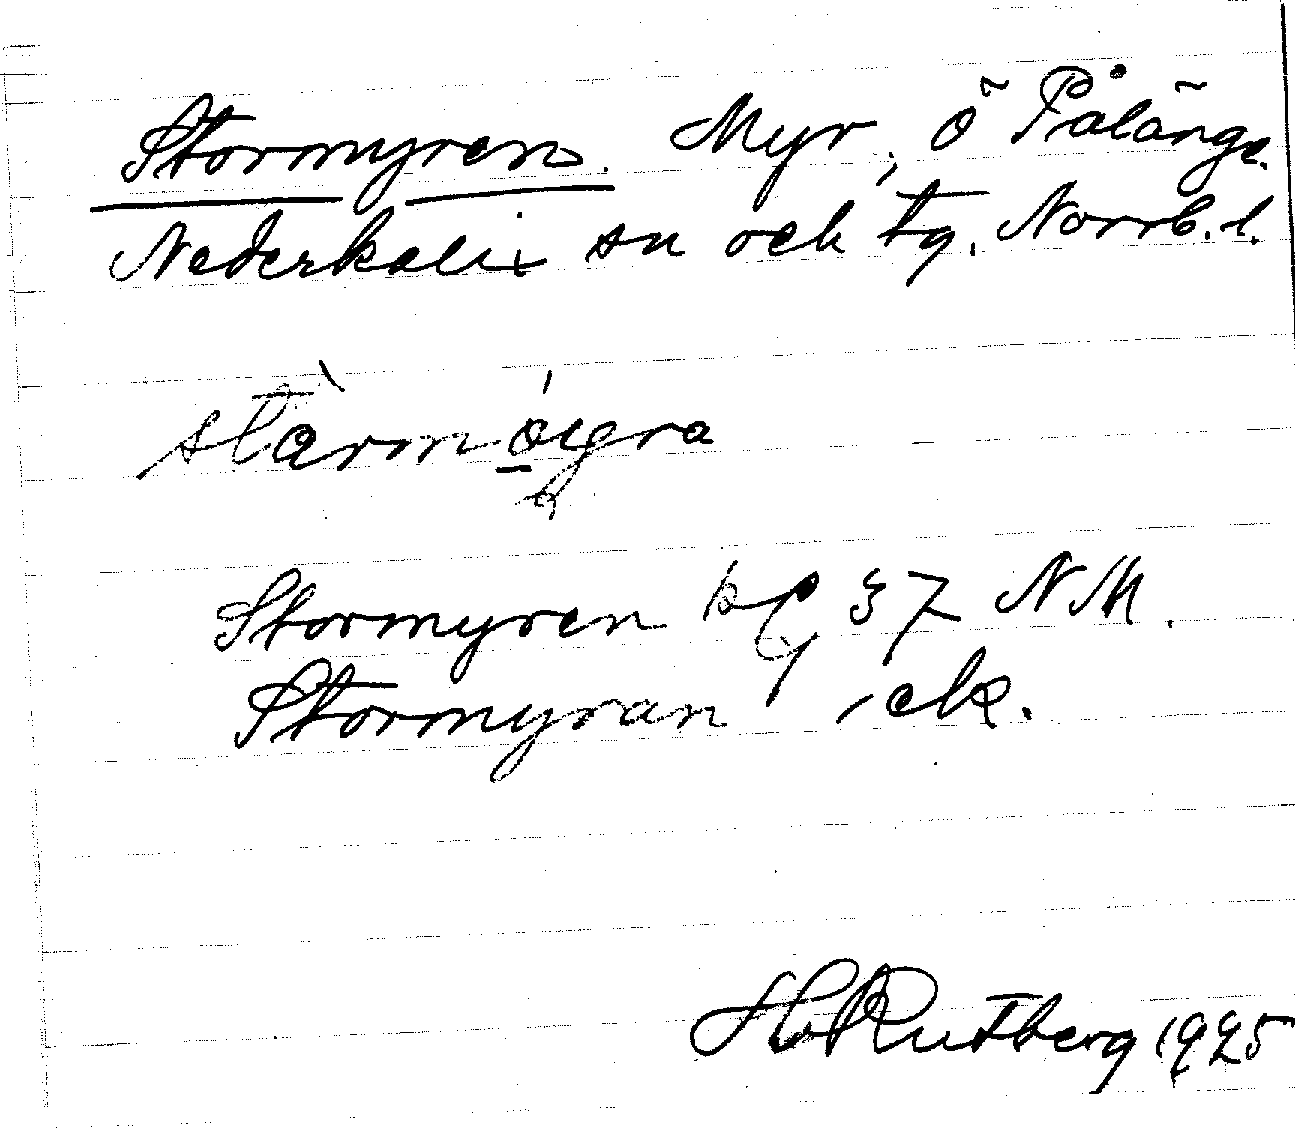 Stormyren. Myr, ö Pålänge.
Nederkalix sn och tg. Norrb. l.
Stormyren 37 NM.
Stormyran ek.
H Rutberg 1925